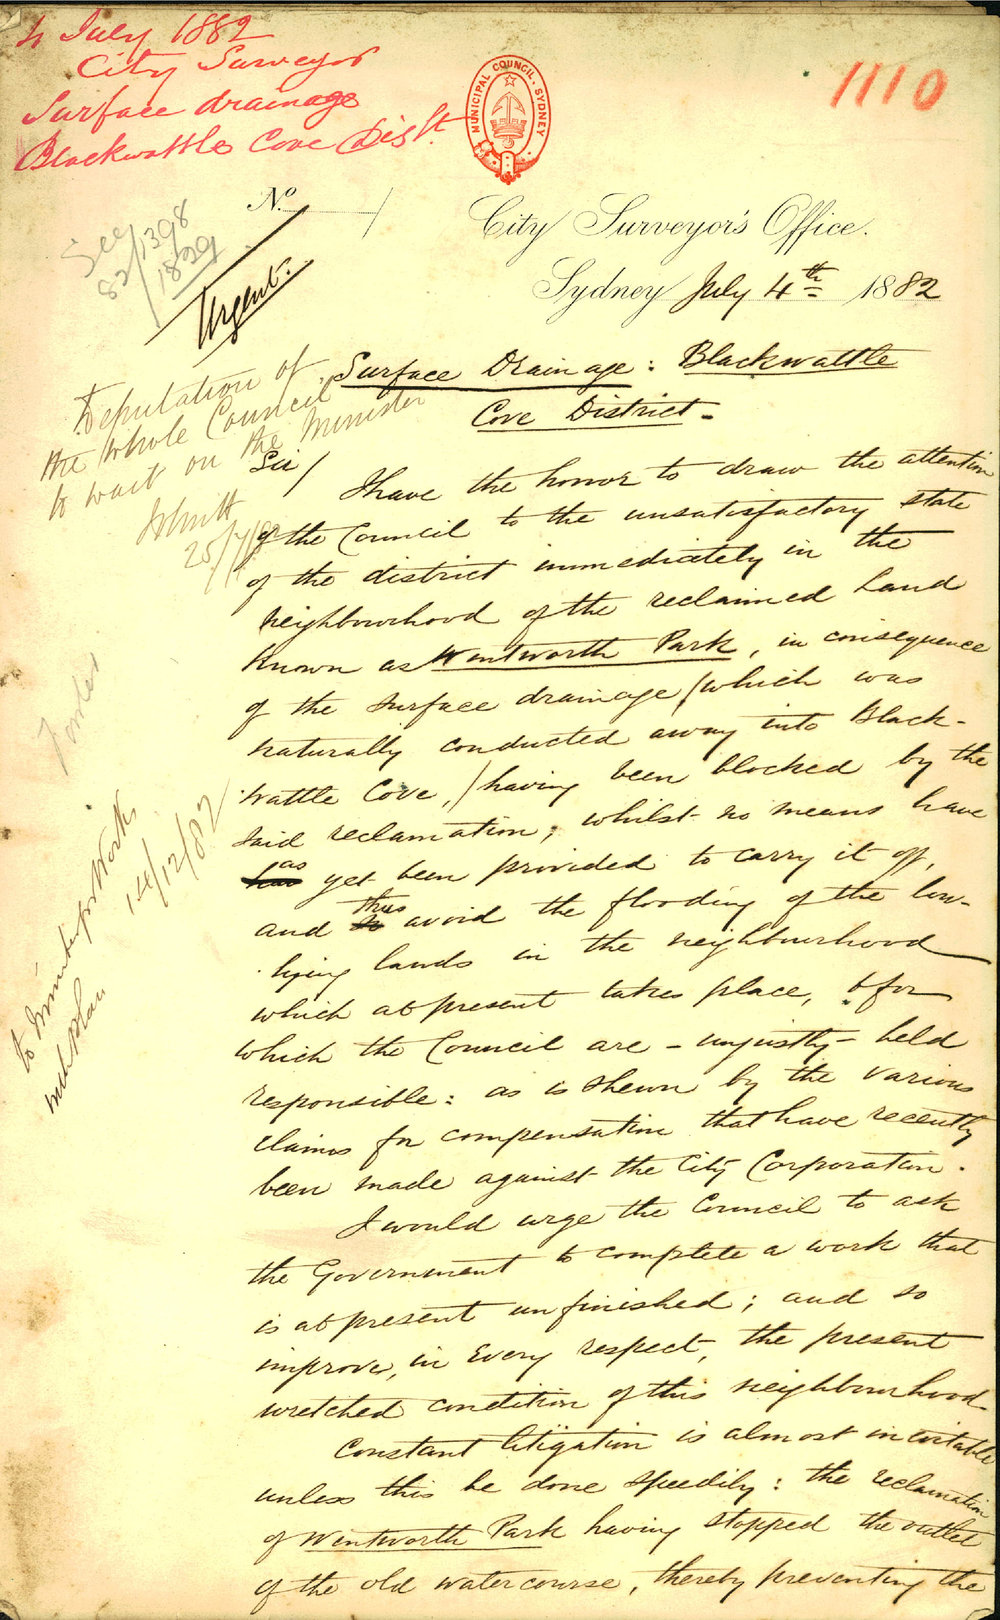 4 July 1882
City Surveyor
Surface drainage
Blackwattle Cove Dist.
MUNICIPAL COUNCIL, SYDNEY
1110
No.
See
82/1398
1829
City Surveyor's Office.
Sydney July 4th 1882
Urgent.
Deputation of
the whole Council
to wait on the Minister
Surface Drainage: Blackwattle
Cove District -
Sir/
I have the honor to draw the attention
of the Council to the unsatisfactory state
of the district immediately in the
neighbourhood of the reclaimed land
known as Wentworth Park, in consequence
of the surface drainage (which was
naturally conducted away into Black-
wattle Cove,) having been blocked by the
said reclamation; whilst no means have
as yet been provided to carry it off,
and thus avoid the flooding of the low-
lying lands in the neighbourhood
which at present takes place, & for
which the Council are - unjustly - held
responsible: as is shewn by the various
claims for compensation that have recently
been made against the City Corporation.
I would urge the Council to ask
the Government to complete a work that
is at present unfinished; and so
improve, in every respect, the present
wretched condition of this neighbourhood.
Constant litigation is almost inevitable
unless this be done speedily: the reclamation
of Wentworth Park having stopped the outlet
of the old watercourse, thereby preventing the
To Minister for Works
14/12/82
with plan